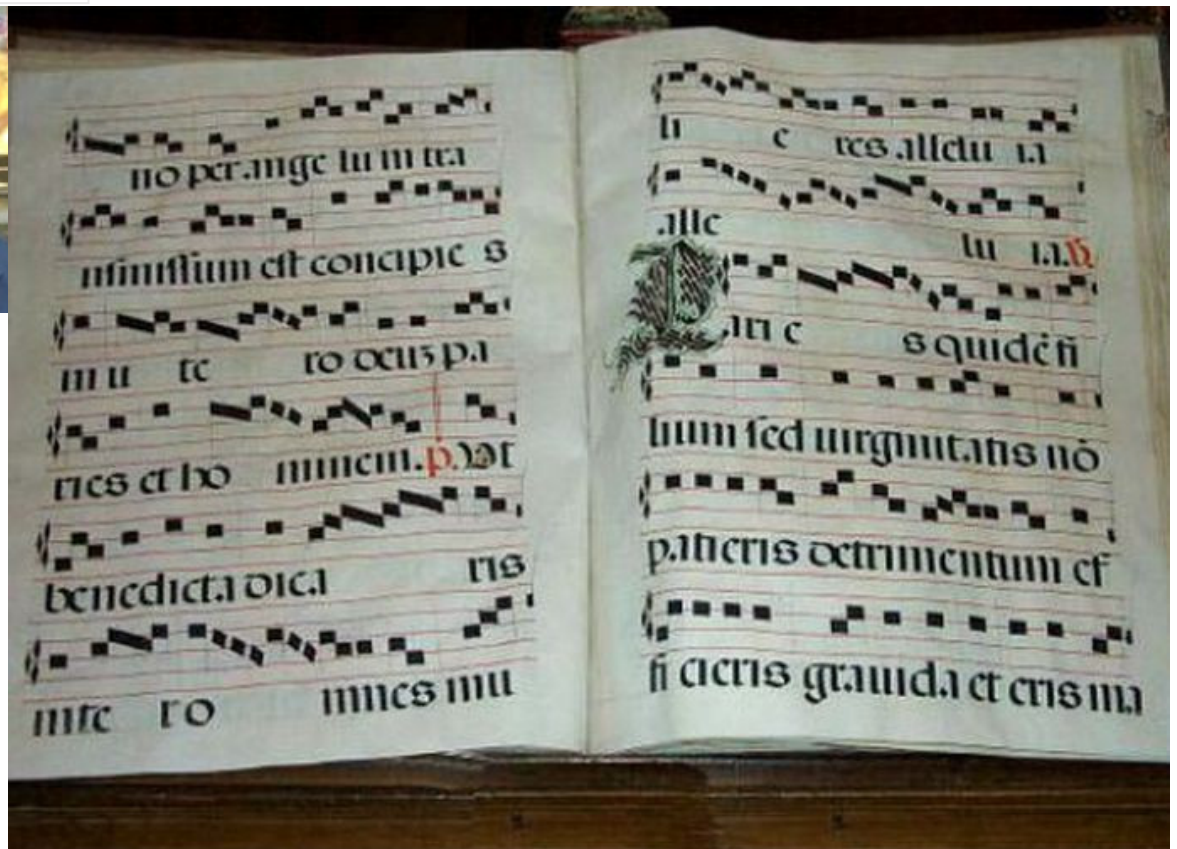 no per angelum tra
nsmissum est concipie s
in u te ro deuz pa
ries et ho minem. p. Vt
benedicta dica ris
inte r o mnes mu
li e res allelu ia
alle lu ia. V
Pari e s quidē fi
lium sed uirginitatis nō
patieris detrimentum ef
fi cieris grauida et eris ma